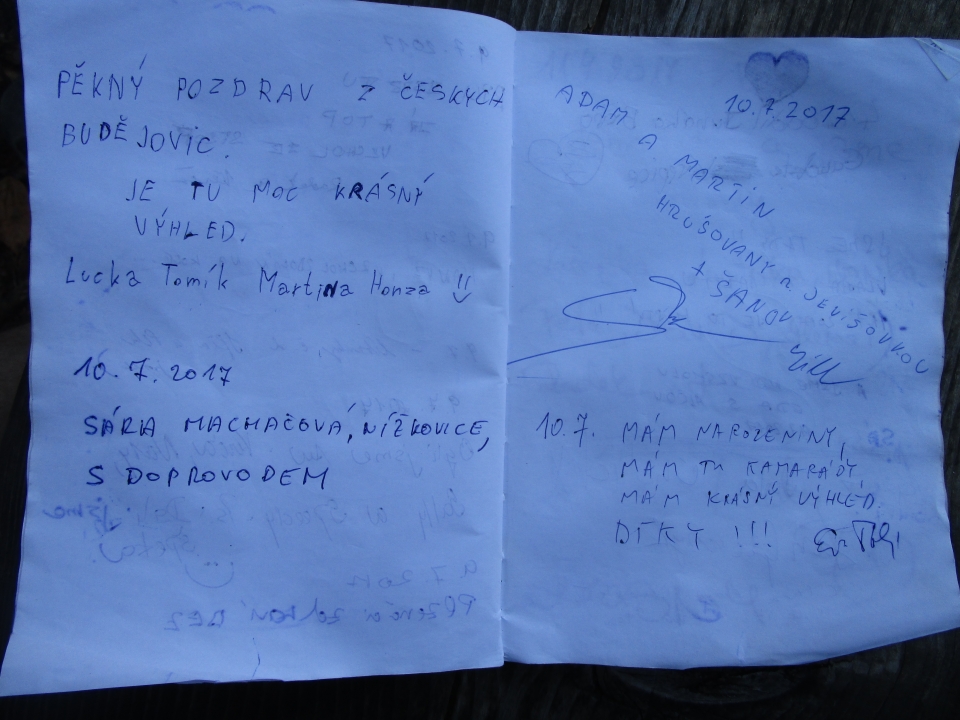 PĚKNÝ POZDRAV Z ČESKÝCH
BUDĚJOVIC.
JE TU MOC KRÁSNÝ
VÝHLED.
Lucka Tomík Martina Honza !!
10.7.2017
SÁRA MACHAČOVÁ, NÍŽKOVICE,
S DOPROVODEM
10.7.2017
ADAM A MARTIN
HRUŠOVANY n. JEVIŠOVKOU
+ ŠANOV
10.7. MÁM NAROZENINY,
MÁM TU KAMARÁDY,
MÁM KRÁSNÝ VÝHLED.
DÍKY !!!